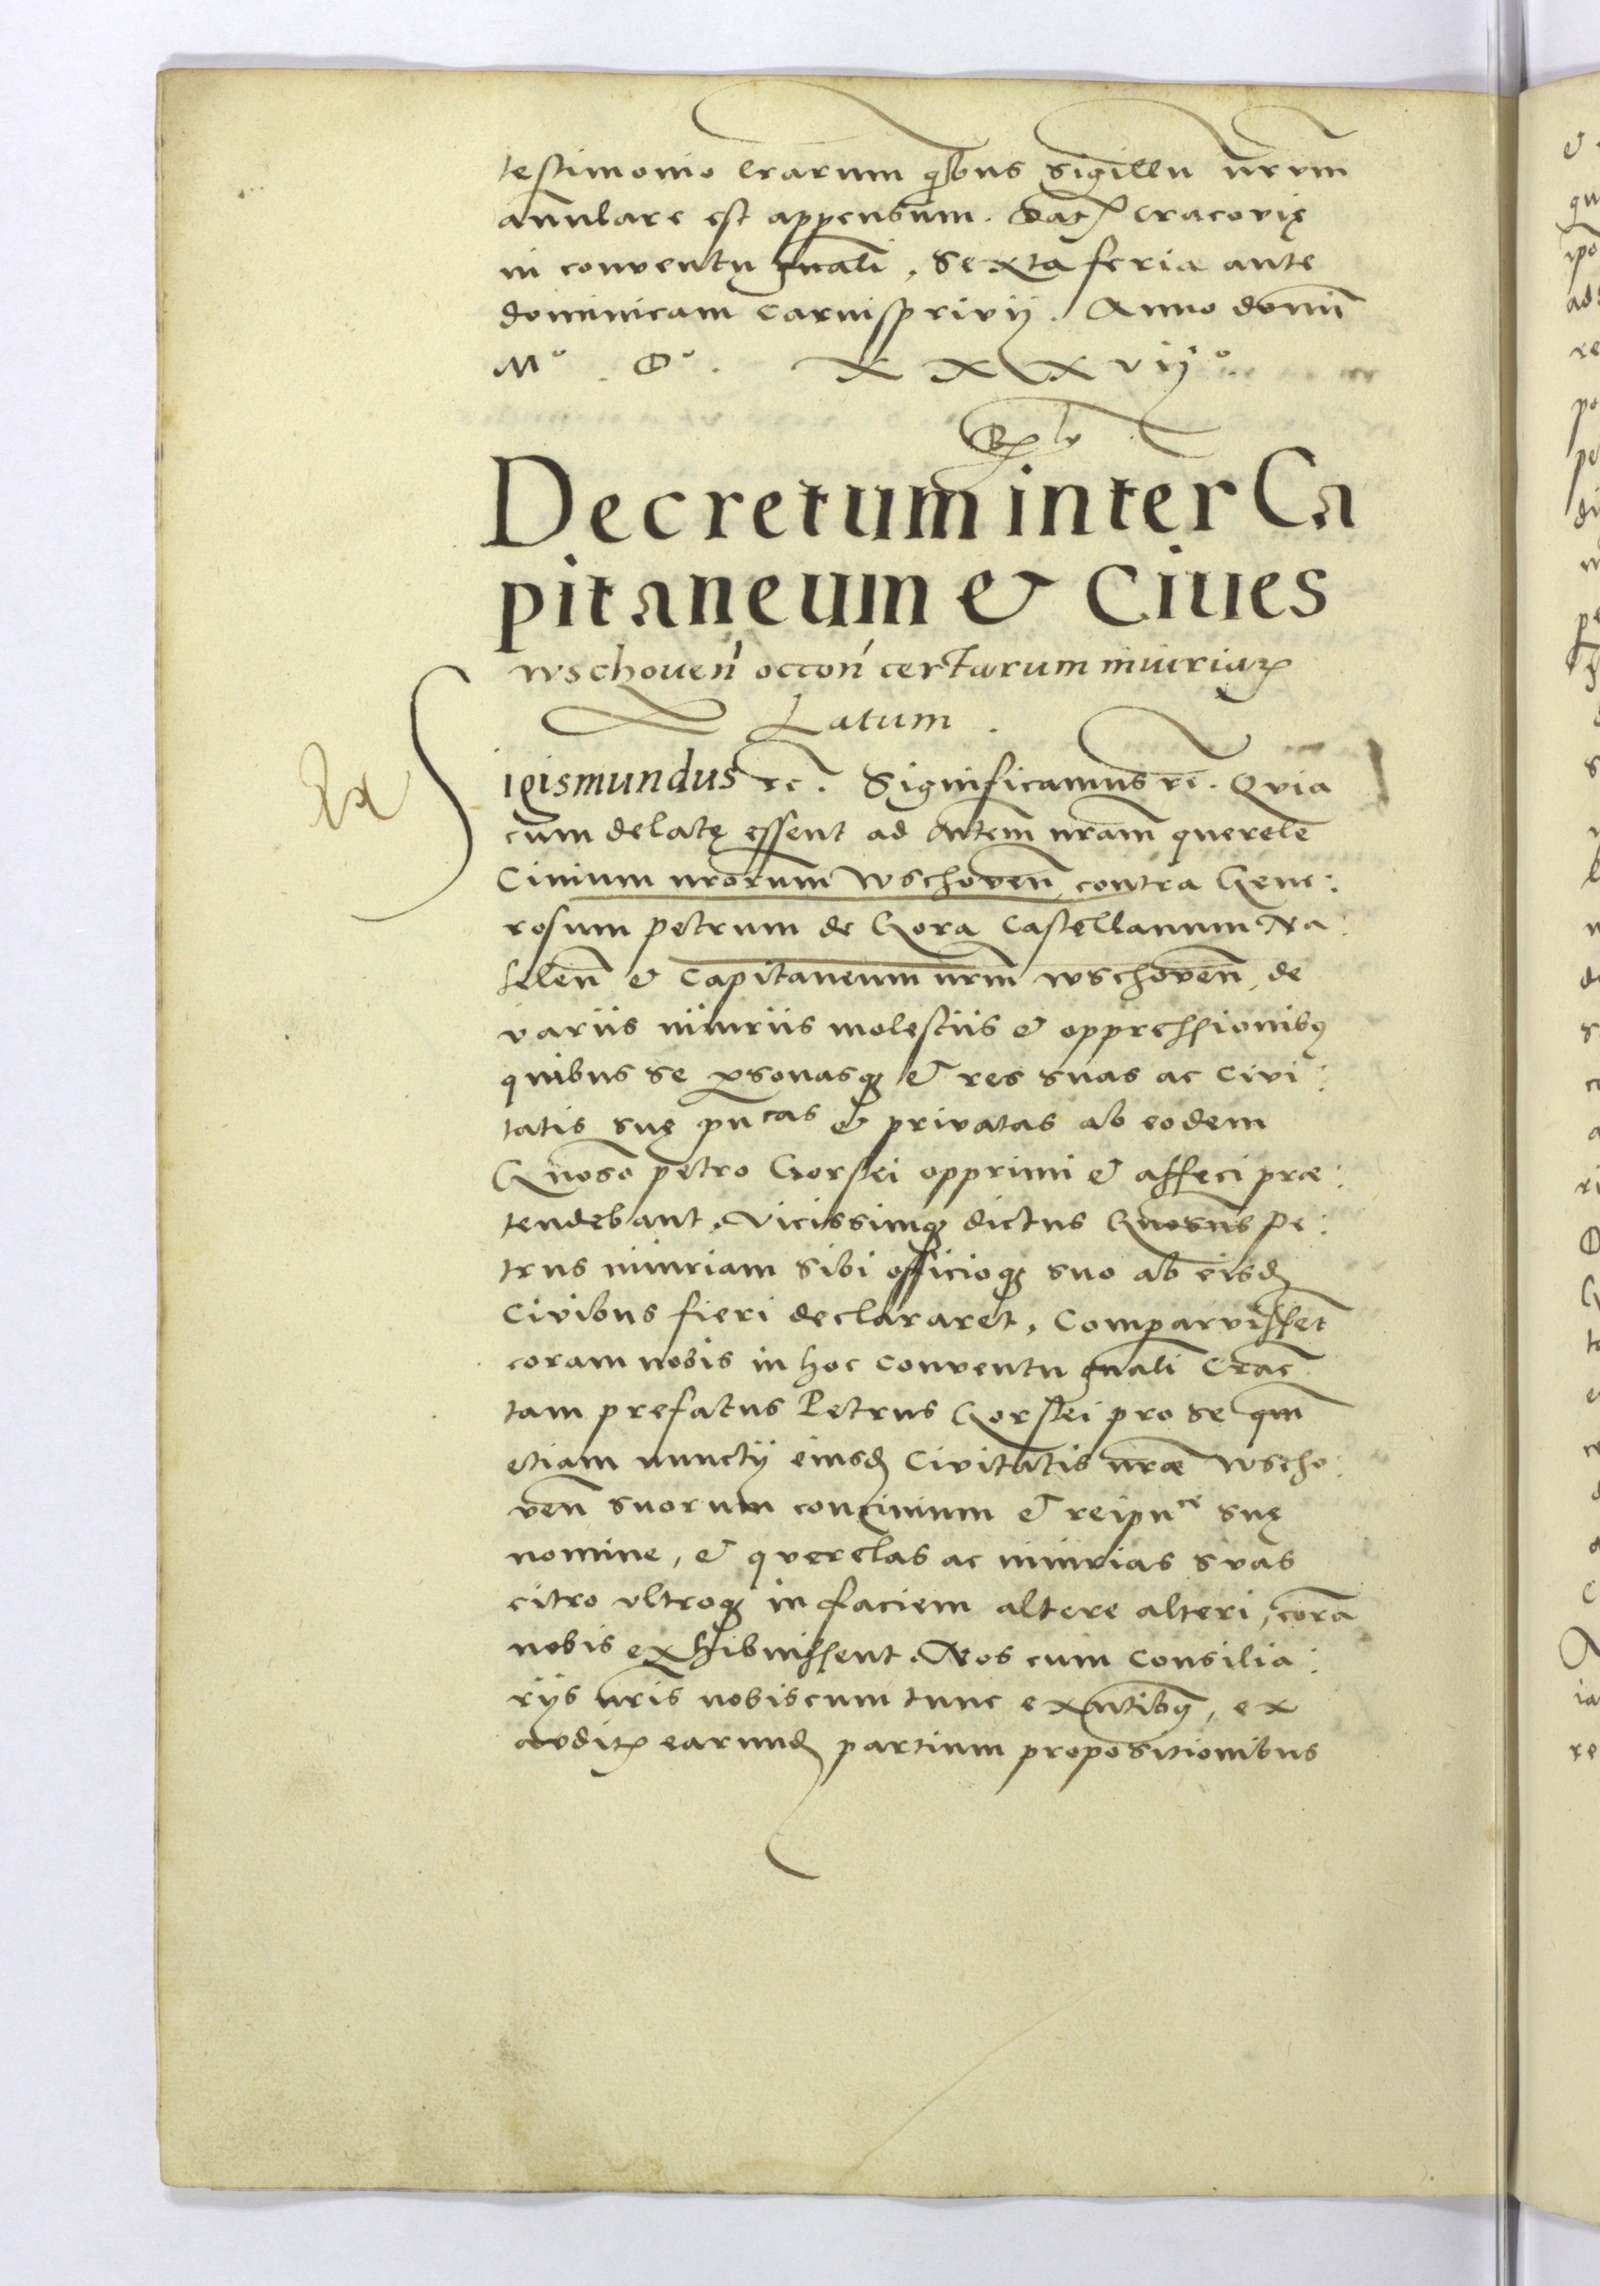 testimonio lrarum qbus sigillu nrum
annulare est appensum. Dat Cracovię
in conventu gnali, Sexta feria ante
dominicam carnisprivij. Anno domi
Mº. Dº. XXXVijº.
Decretum inter Ca
pitaneum & Ciues
Wschouen occon certarum iniuriar
Latum.
Sigismundus rc. Significamus rc. Qvia
cum delatę essent ad Mtem nram querele
Civium nrorum Wschoven, contra Gene:
rosum petrum de Gora Castellanum Na:
kelen & Capitaneum nrm wschoven, de
variis iniuriis molestiis & oppressionibq
quibus se psonasq & res suas ac Civi:
tatis suę pucas & privatas ab eodem
Gnoso petro Gorski opprimi & affeci præ:
tendebant, Vicissimq dictus Gnosus Pe:
trus iniuriam sibi officioq suo ab eisd
Civibus fieri declararet, Comparvisset
coram nobis in hoc conventu gnali Crac
tam prefatus Petrus Gorski pro se qm
etiam nunctij eiusd Civitatis nræ Wscho:
ven suorum concivium & reipuce suę
nomine, & querelas ac iniurias svas
citro vltroq in faciem altere alteri, cora
nobis exhibuissent. Nos cum Consilia:
rijs nris nobiscum tunc exntibq, ex
avdit earund partium propositionibus